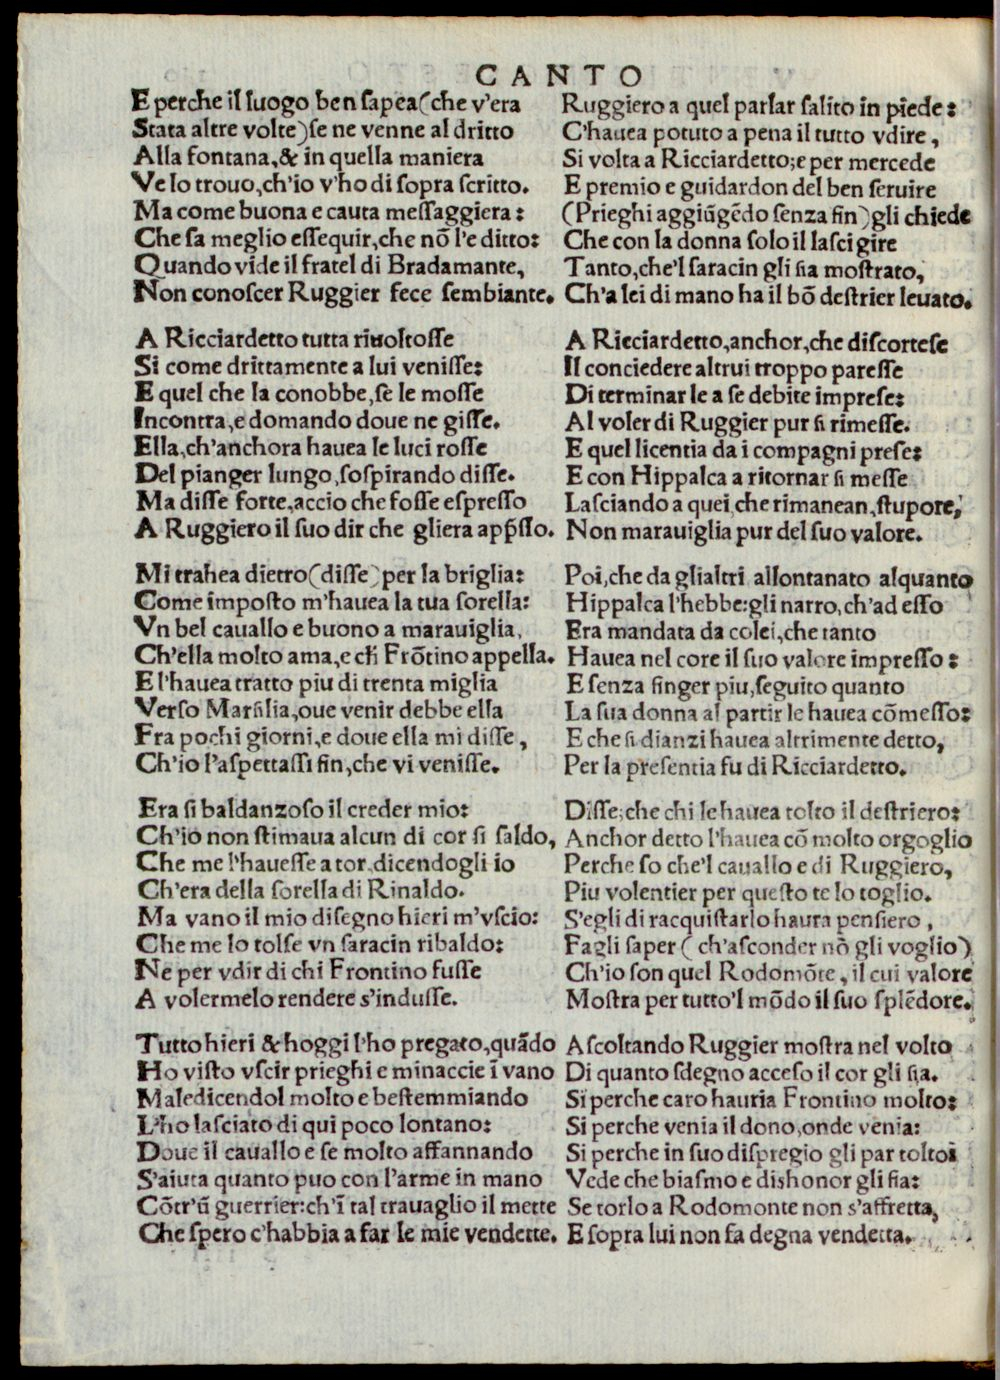 CANTO
E perche il luogo ben sapea (che v'era
Stata altre volte) se ne venne al dritto
Alla fontana, & in quella maniera
Ve lo trouo, ch'io v'ho di sopra scritto.
Ma come buona e cauta messaggiera:
Che sa meglio essequir, che nõ l'e ditto:
Quando vide il fratel di Bradamante,
Non conoscer Ruggier fece sembiante.
A Ricciardetto tutta rivoltosse
Si come drittamente a lui venisse:
E quel che la conobbe, se le mosse
Incontra, e domando doue ne gisse.
Ella, ch'anchora hauea le luci rosse
Del pianger lungo, sospirando disse.
Ma disse forte, accio che fosse espresso
A Ruggiero il suo dir che gliera app̃sso.
Mi trahea dietro (disse) per la briglia:
Come imposto m'hauea la tua sorella:
Vn bel cauallo e buono a marauiglia,
Ch'ella molto ama, e ch̃ Frõtino appella.
E l'hauea tratto piu di trenta miglia
Verso Marsilia, oue venir debbe ella
Fra pochi giorni, e doue ella mi disse,
Ch'io l'aspettassi fin, che vi venisse.
Era si baldanzoso il creder mio:
Ch'io non stimaua alcun di cor si saldo,
Che me l'hauesse a tor, dicendogli io
Ch'era della sorella di Rinaldo.
Ma vano il mio disegno hieri m'vscio:
Che me lo tolse vn saracin ribaldo:
Ne per vdir di chi Frontino fusse
A volermelo rendere s'indusse.
Tutto hieri & hoggi l'ho pregato, quãdo
Ho visto vscir prieghi e minaccie ĩ vano
Maledicendol molto e bestemmiando
L'ho lasciato di qui poco lontano:
Doue il cauallo e se molto affannando
S'aiuta quanto puo con l'arme in mano
Cõtr'ũ guerrier: ch'ĩ tal trauaglio il mette
Che spero c'habbia a far le mie vendette.
Ruggiero a quel parlar salito in piede:
C'hauea potuto a pena il tutto vdire,
Si volta a Ricciardetto; e per mercede
E premio e guidardon del ben seruire
(Prieghi aggiũgẽdo senza fin) gli chiede
Che con la donna solo il lasci gire
Tanto, che'l saracin gli sia mostrato,
Ch'a lei di mano ha il bõ destrier leuato.
A Ricciardetto, anchor, che discortese
Il conciedere altrui troppo paresse
Di terminar le a se debite imprese:
Al voler di Ruggier pur si rimesse.
E quel licentia da i compagni prese:
E con Hippalca a ritornar si messe
Lasciando a quei, che rimanean, stupore,
Non marauiglia pur del suo valore.
Poi, che da glialtri allontanato alquanto
Hippalca l'hebbe: gli narro, ch'ad esso
Era mandata da colei, che tanto
Hauea nel core il suo valore impresso:
E senza finger piu, seguito quanto
La sua donna al partir le hauea cõmesso:
E che si dianzi hauea altrimente detto,
Per la presentia fu di Ricciardetto.
Disse, che chi le hauea tolto il destriero:
Anchor detto l'hauea cõ molto orgoglio
Perche so che'l cauallo e di Ruggiero,
Piu volentier per questo te lo toglio.
S'egli di racquistarlo haura pensiero,
Fagli saper (ch'asconder nõ gli voglio)
Ch'io son quel Rodomõte, il cui valore
Mostra per tutto'l mõdo il suo splẽdore.
Ascoltando Ruggier mostra nel volto
Di quanto sdegno acceso il cor gli sia.
Si perche caro hauria Frontino molto:
Si perche venia il dono, onde venia:
Si perche in suo dispregio gli par tolto:
Vede che biasmo e dishonor gli fia:
Se torlo a Rodomonte non s'affretta,
E sopra lui non fa degna vendetta.